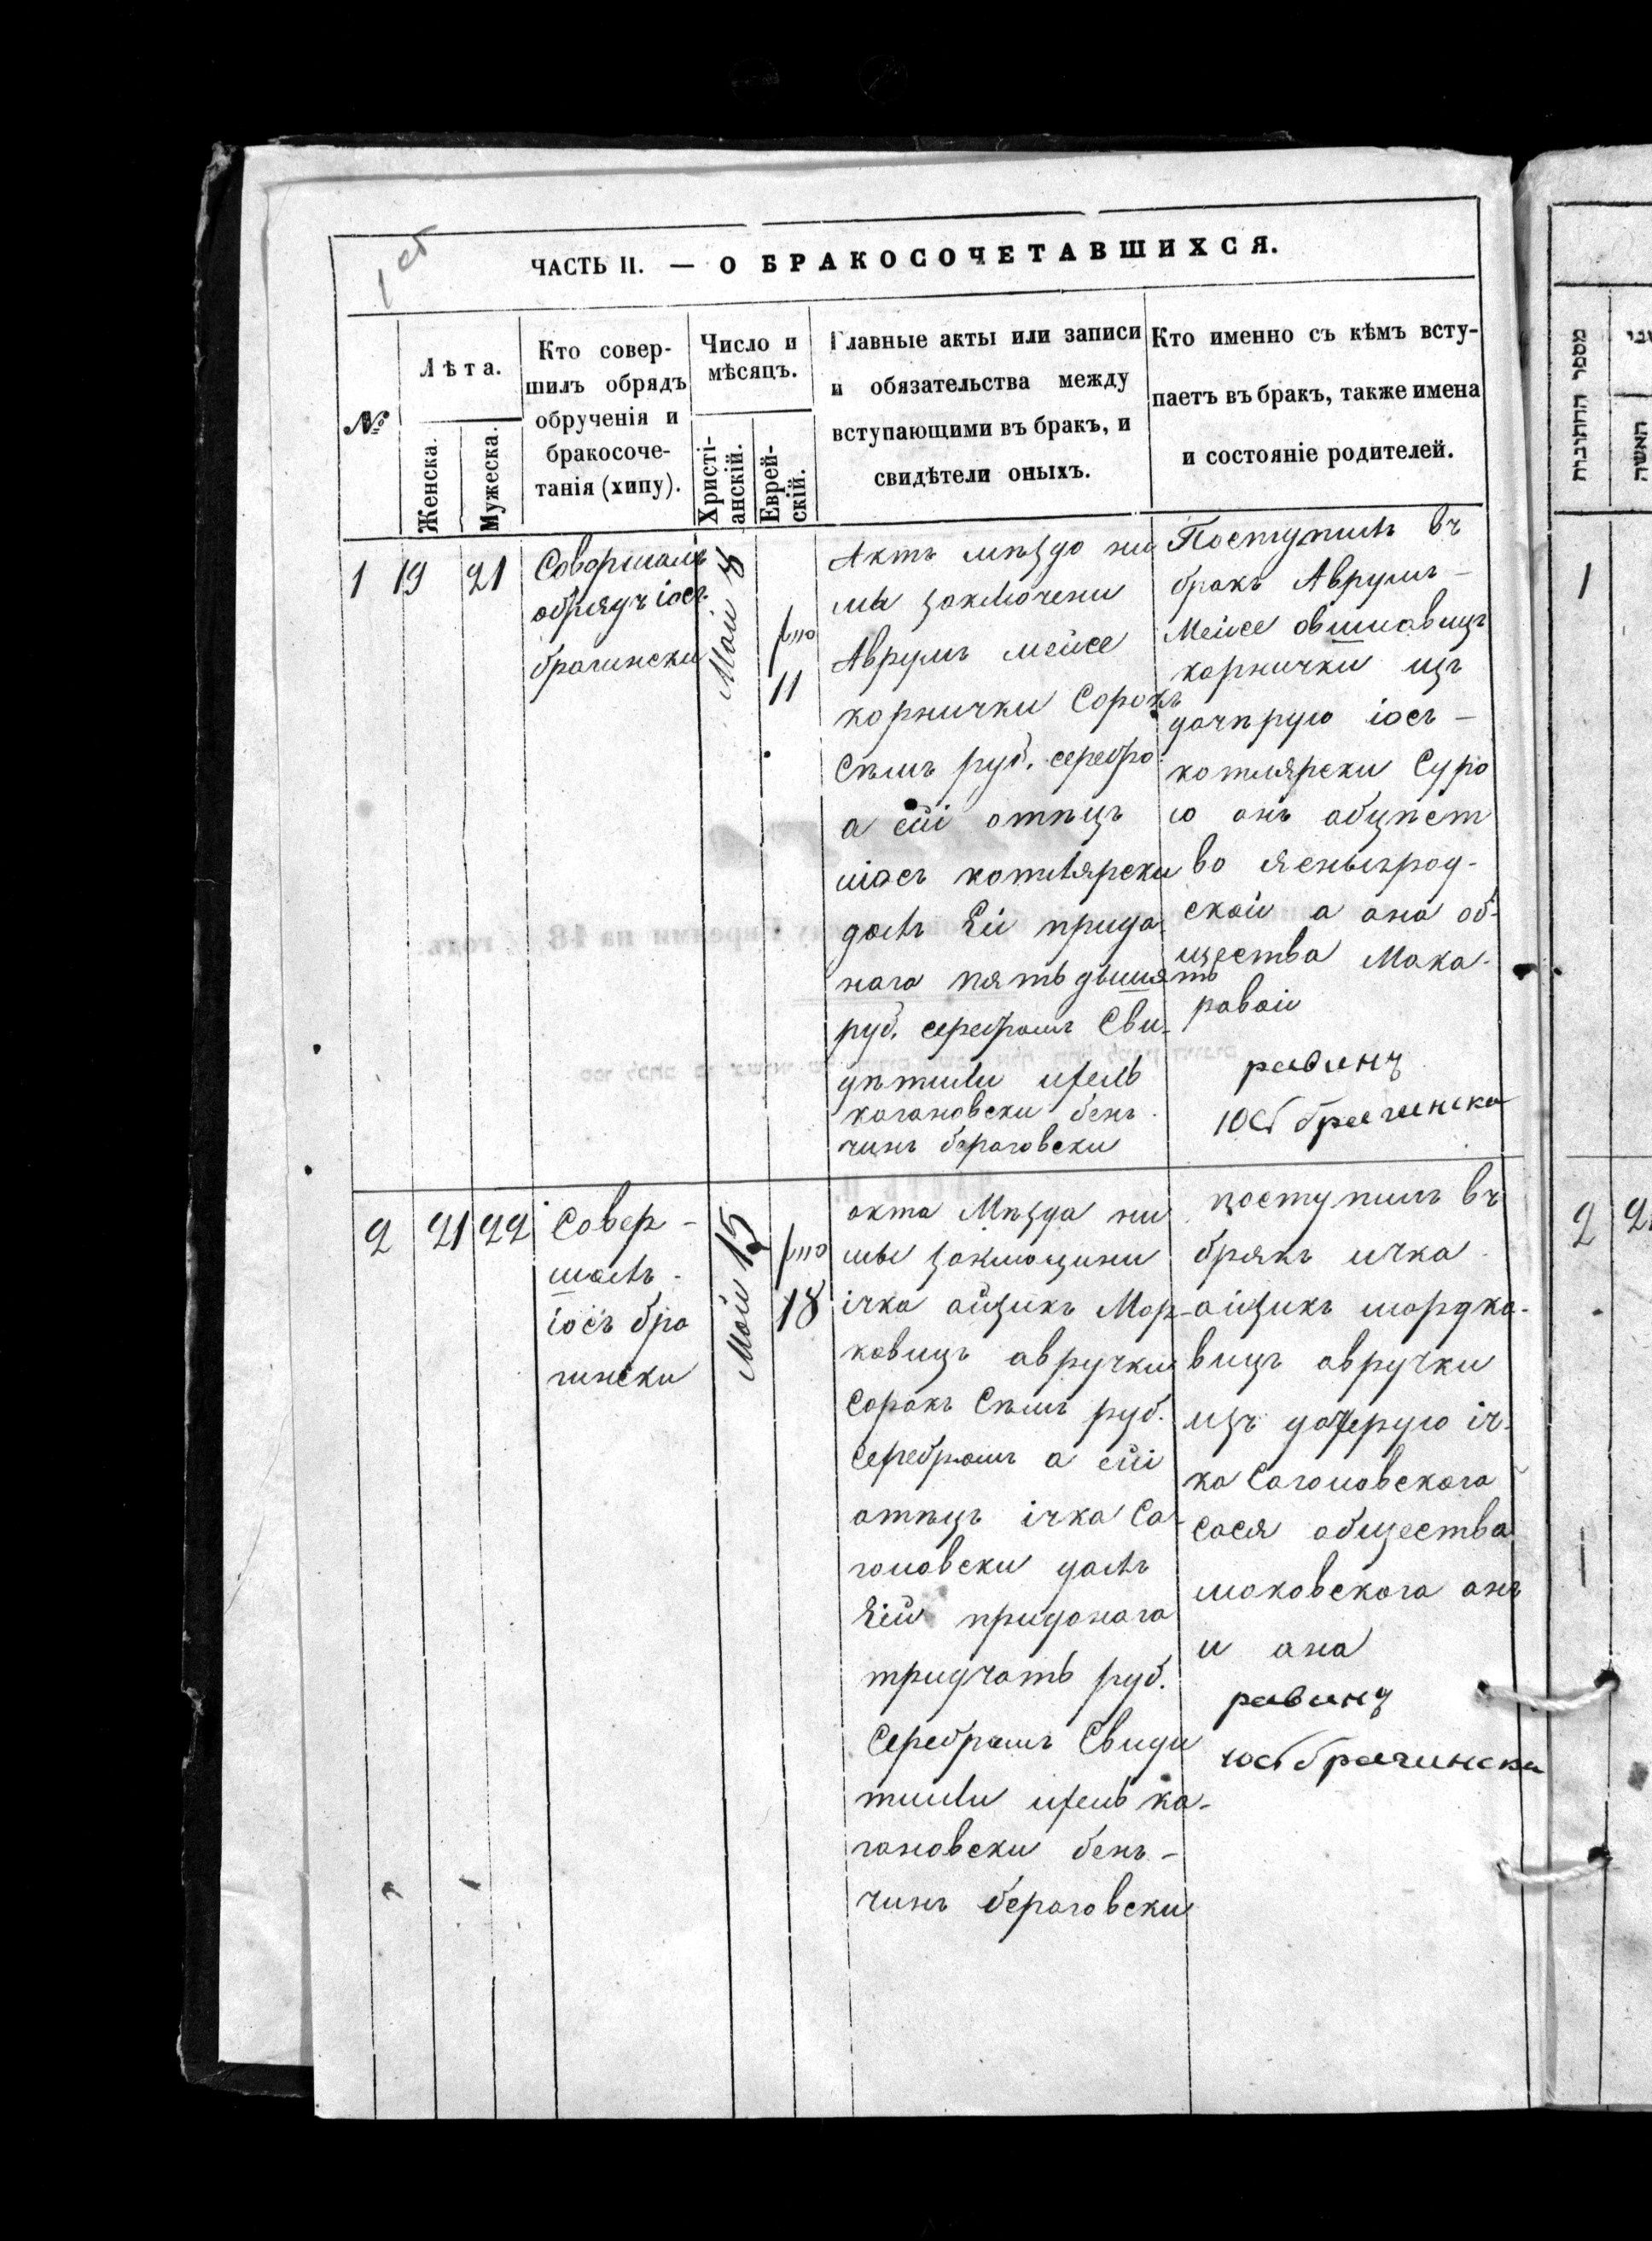 1 ст
ЧАСТЬ II. — О БРАКОСОЧЕТАВШИХСЯ.
№
Лѣта.
Женска.
Мужеска.
Кто совер-
шилъ обрядъ
обрученія и
бракосоче-
танія (хипу).
Число и
мѣсяцъ.
Христі-
анскій.
Еврей-
скій.
Главные акты или записи
и обязательства между
вступающими въ бракъ, и
свидѣтели оныхъ.
Кто именно съ кѣмъ всту-
паетъ въ бракъ, также имена
и состояніе родителей.
1 19 21
Совершалъ
обрядъ іос.
брагински
Маи 8
11
Актъ мѣздо ни
мы заключени
Аврумъ мейсе
корнички Сорокъ
Сѣмъ руб. серебро
а еій отѣцъ
іосъ котлярски
далъ Еій прида
наго пятьдышять
руб. серебромъ Сви-
дѣтили изель
кагановски бен-
чинъ бераговски
Поступилъ въ
бракъ Аврумъ-
Мейсе овшиовицъ
корнички изъ
дочѣрую іось-
котлярски Суро
ю онъ абцѣст
во ясныгрод-
скаи а ана об-
щества Мака-
раваи
равинъ
юс брагинска
2 21 22
Совер-
шалъ
іосъ бра
гински
Маи 15
18
акта Мѣзда ни
мы заключини
ічка айзикъ Мор-
ковицъ авручки
Сорокъ Сѣмъ руб.
Серебромъ а еій
атѣцъ ічка Са-
гоновски далъ
Еій приданага
тридчать руб.
Серебромъ Свиди
тили изель ка-
гановски бен-
чинъ бераговски
поступилъ въ
бракъ ичка
айзикъ мордка-
вицъ авручки
изъ дочерую іч-
ка Сагоновскага
Сося общества
маковскага анъ
и ана
равинъ
юс брагински
מספר החתונות
האשה
1
2